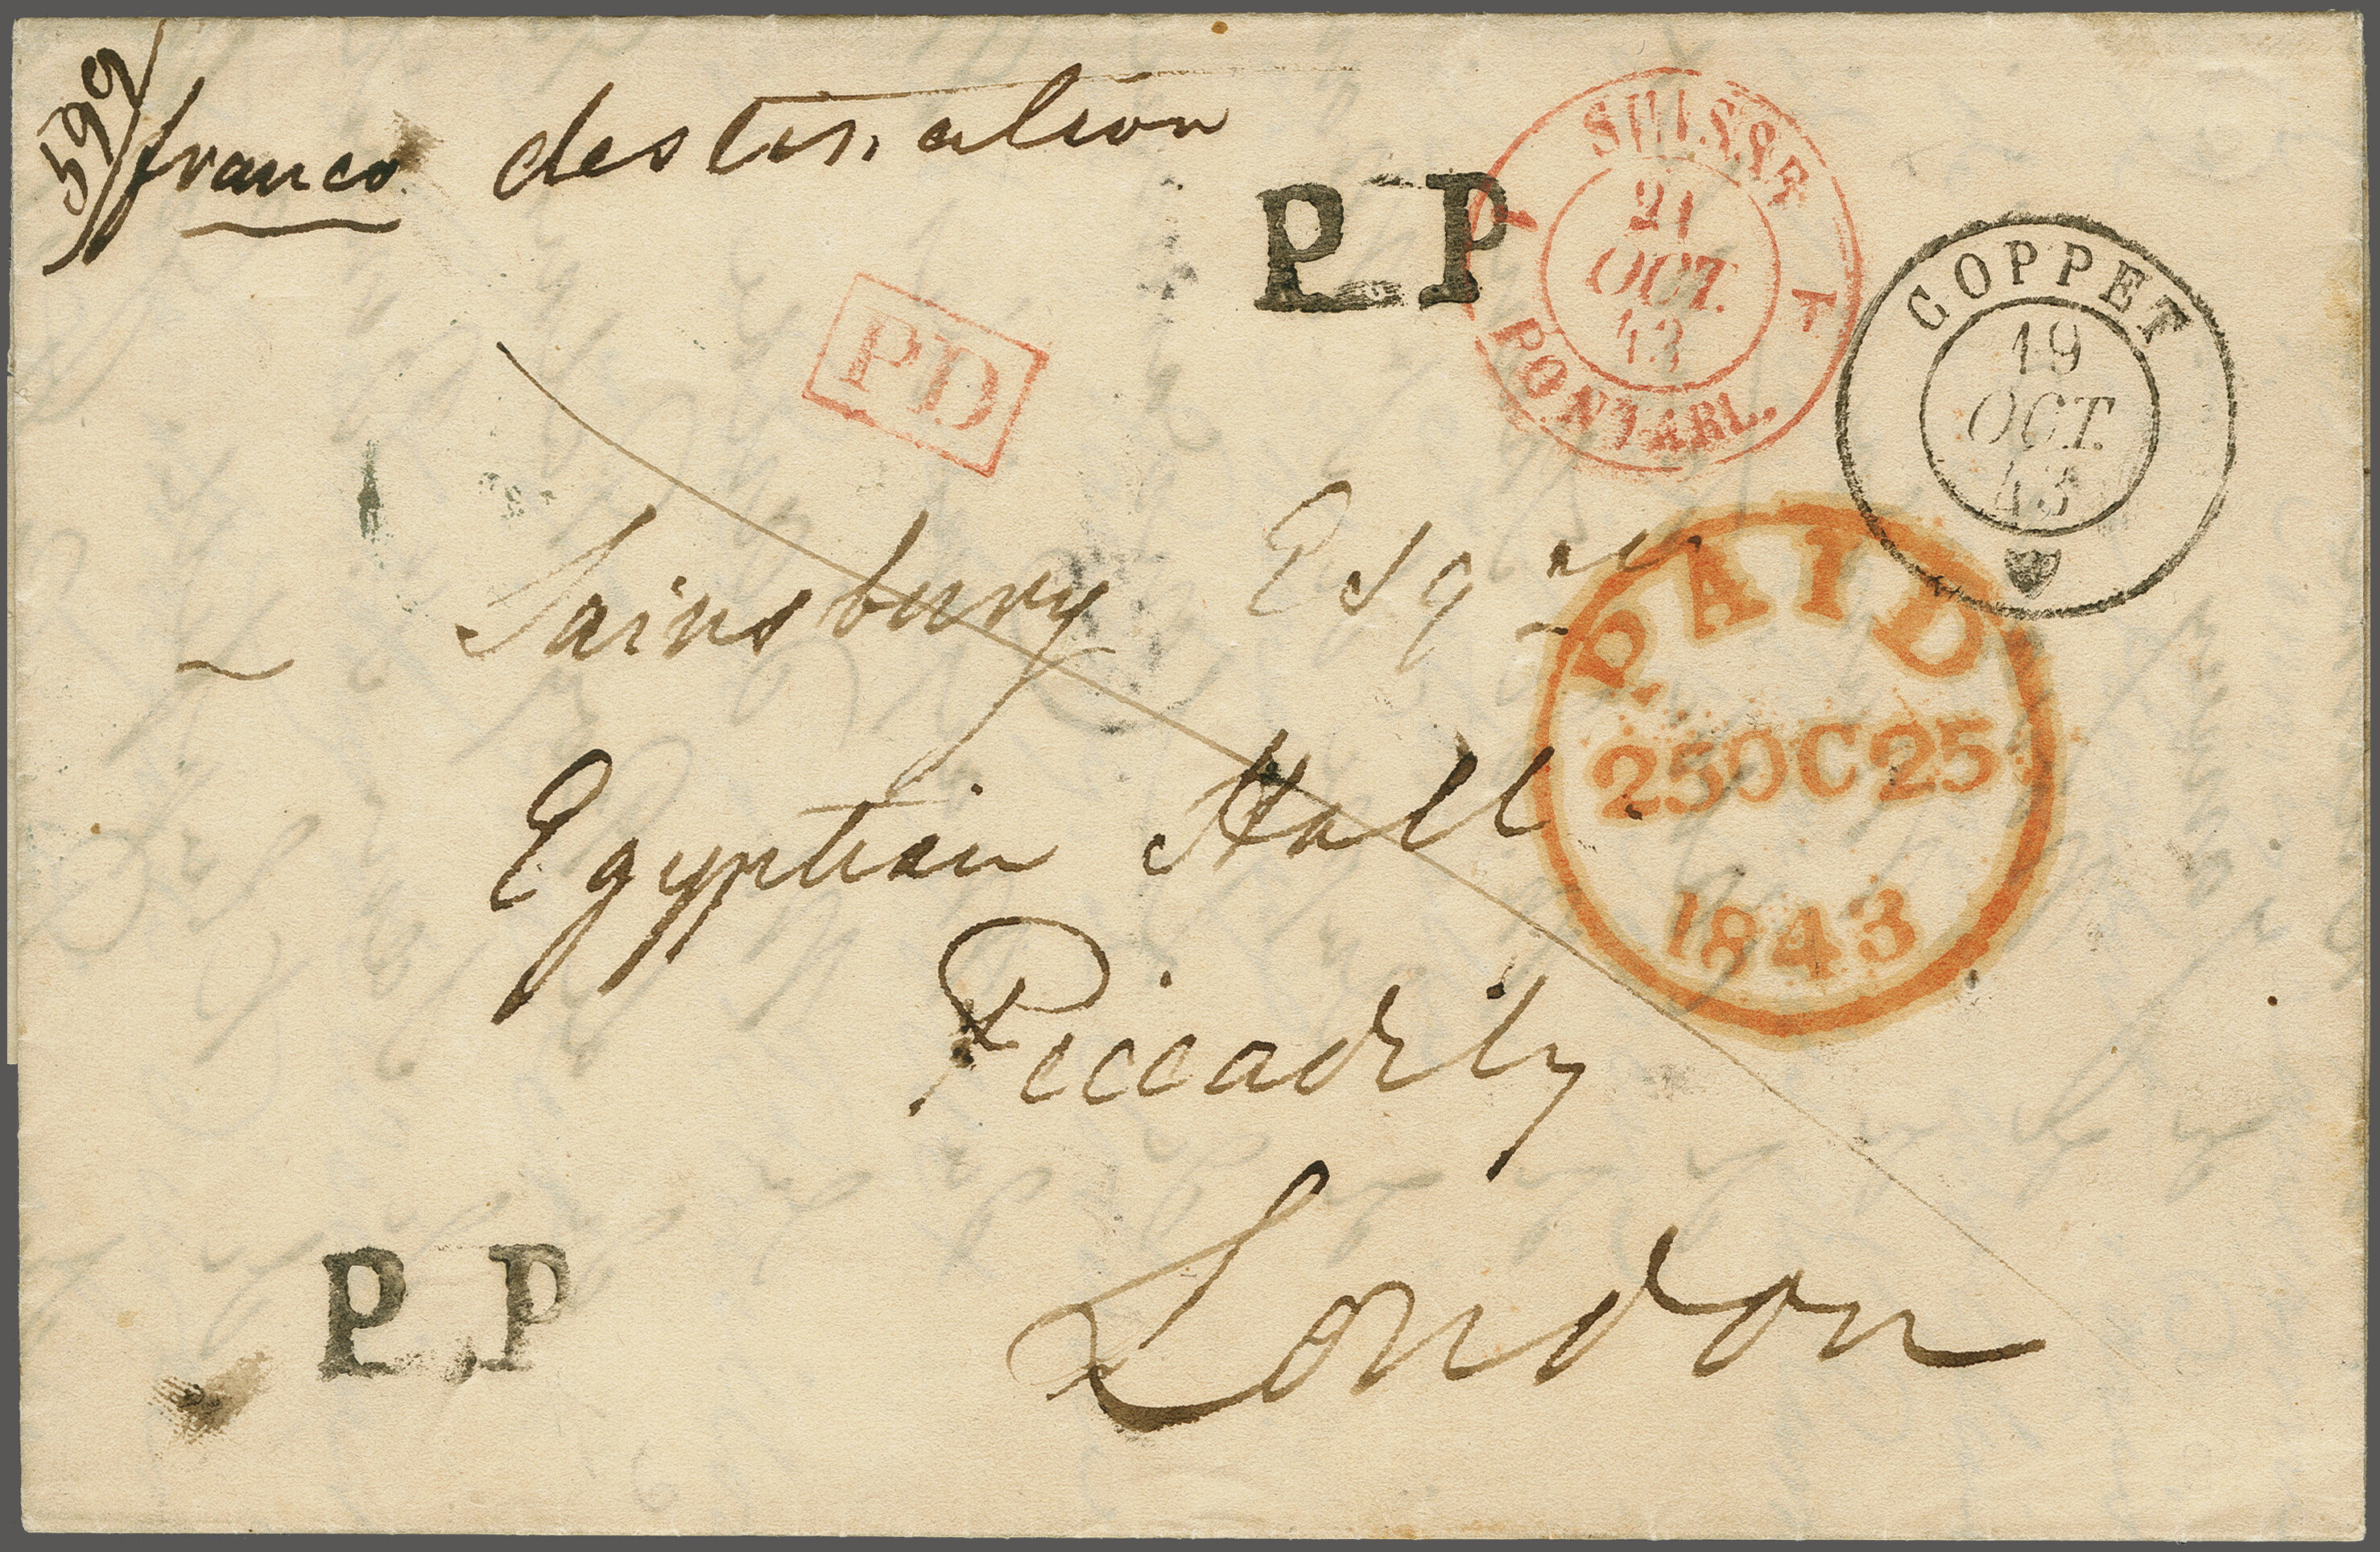 599
franco destination
P.P
SUISSE
21
OCT.
43
PONTARL.
COPPET
19
OCT.
43
PD
PAID
25 OC 25
1843
Sainsbury Esqre
Egyptian Hall
Piccadily
London
P.P